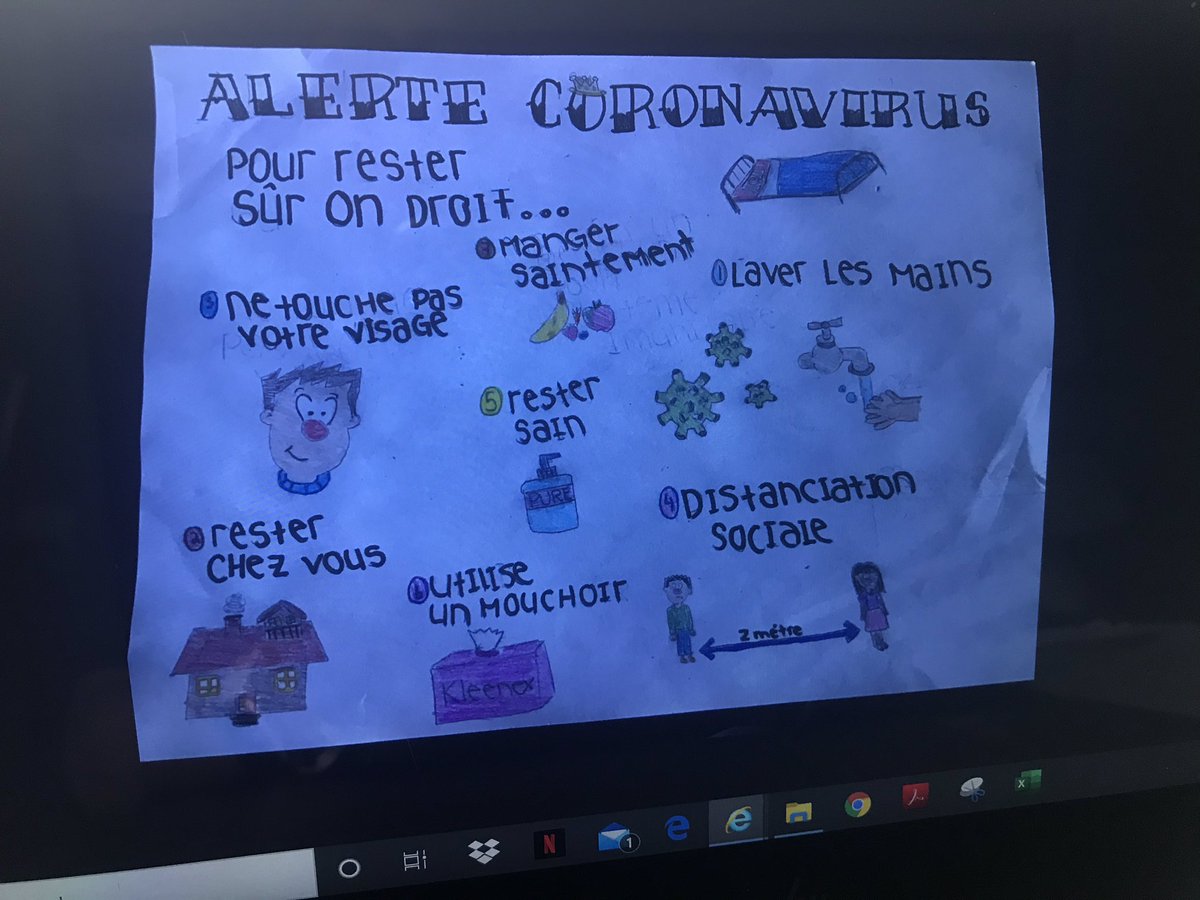 ALERTE CORONAVIRUS
POUR rester
SÛR ON DROIT...
MANGER
SAINTEMENT
1 LAVER LES MAINS
3 NE TOUCHE PAS
VOTRE VISAGE
5 rester
SAIN
PURE
4 DISTANCIATION
SOCIALE
2 rester
CHEZ VOUS
UTILISE
UN MOUCHOIR
2 métre
Kleenex
1